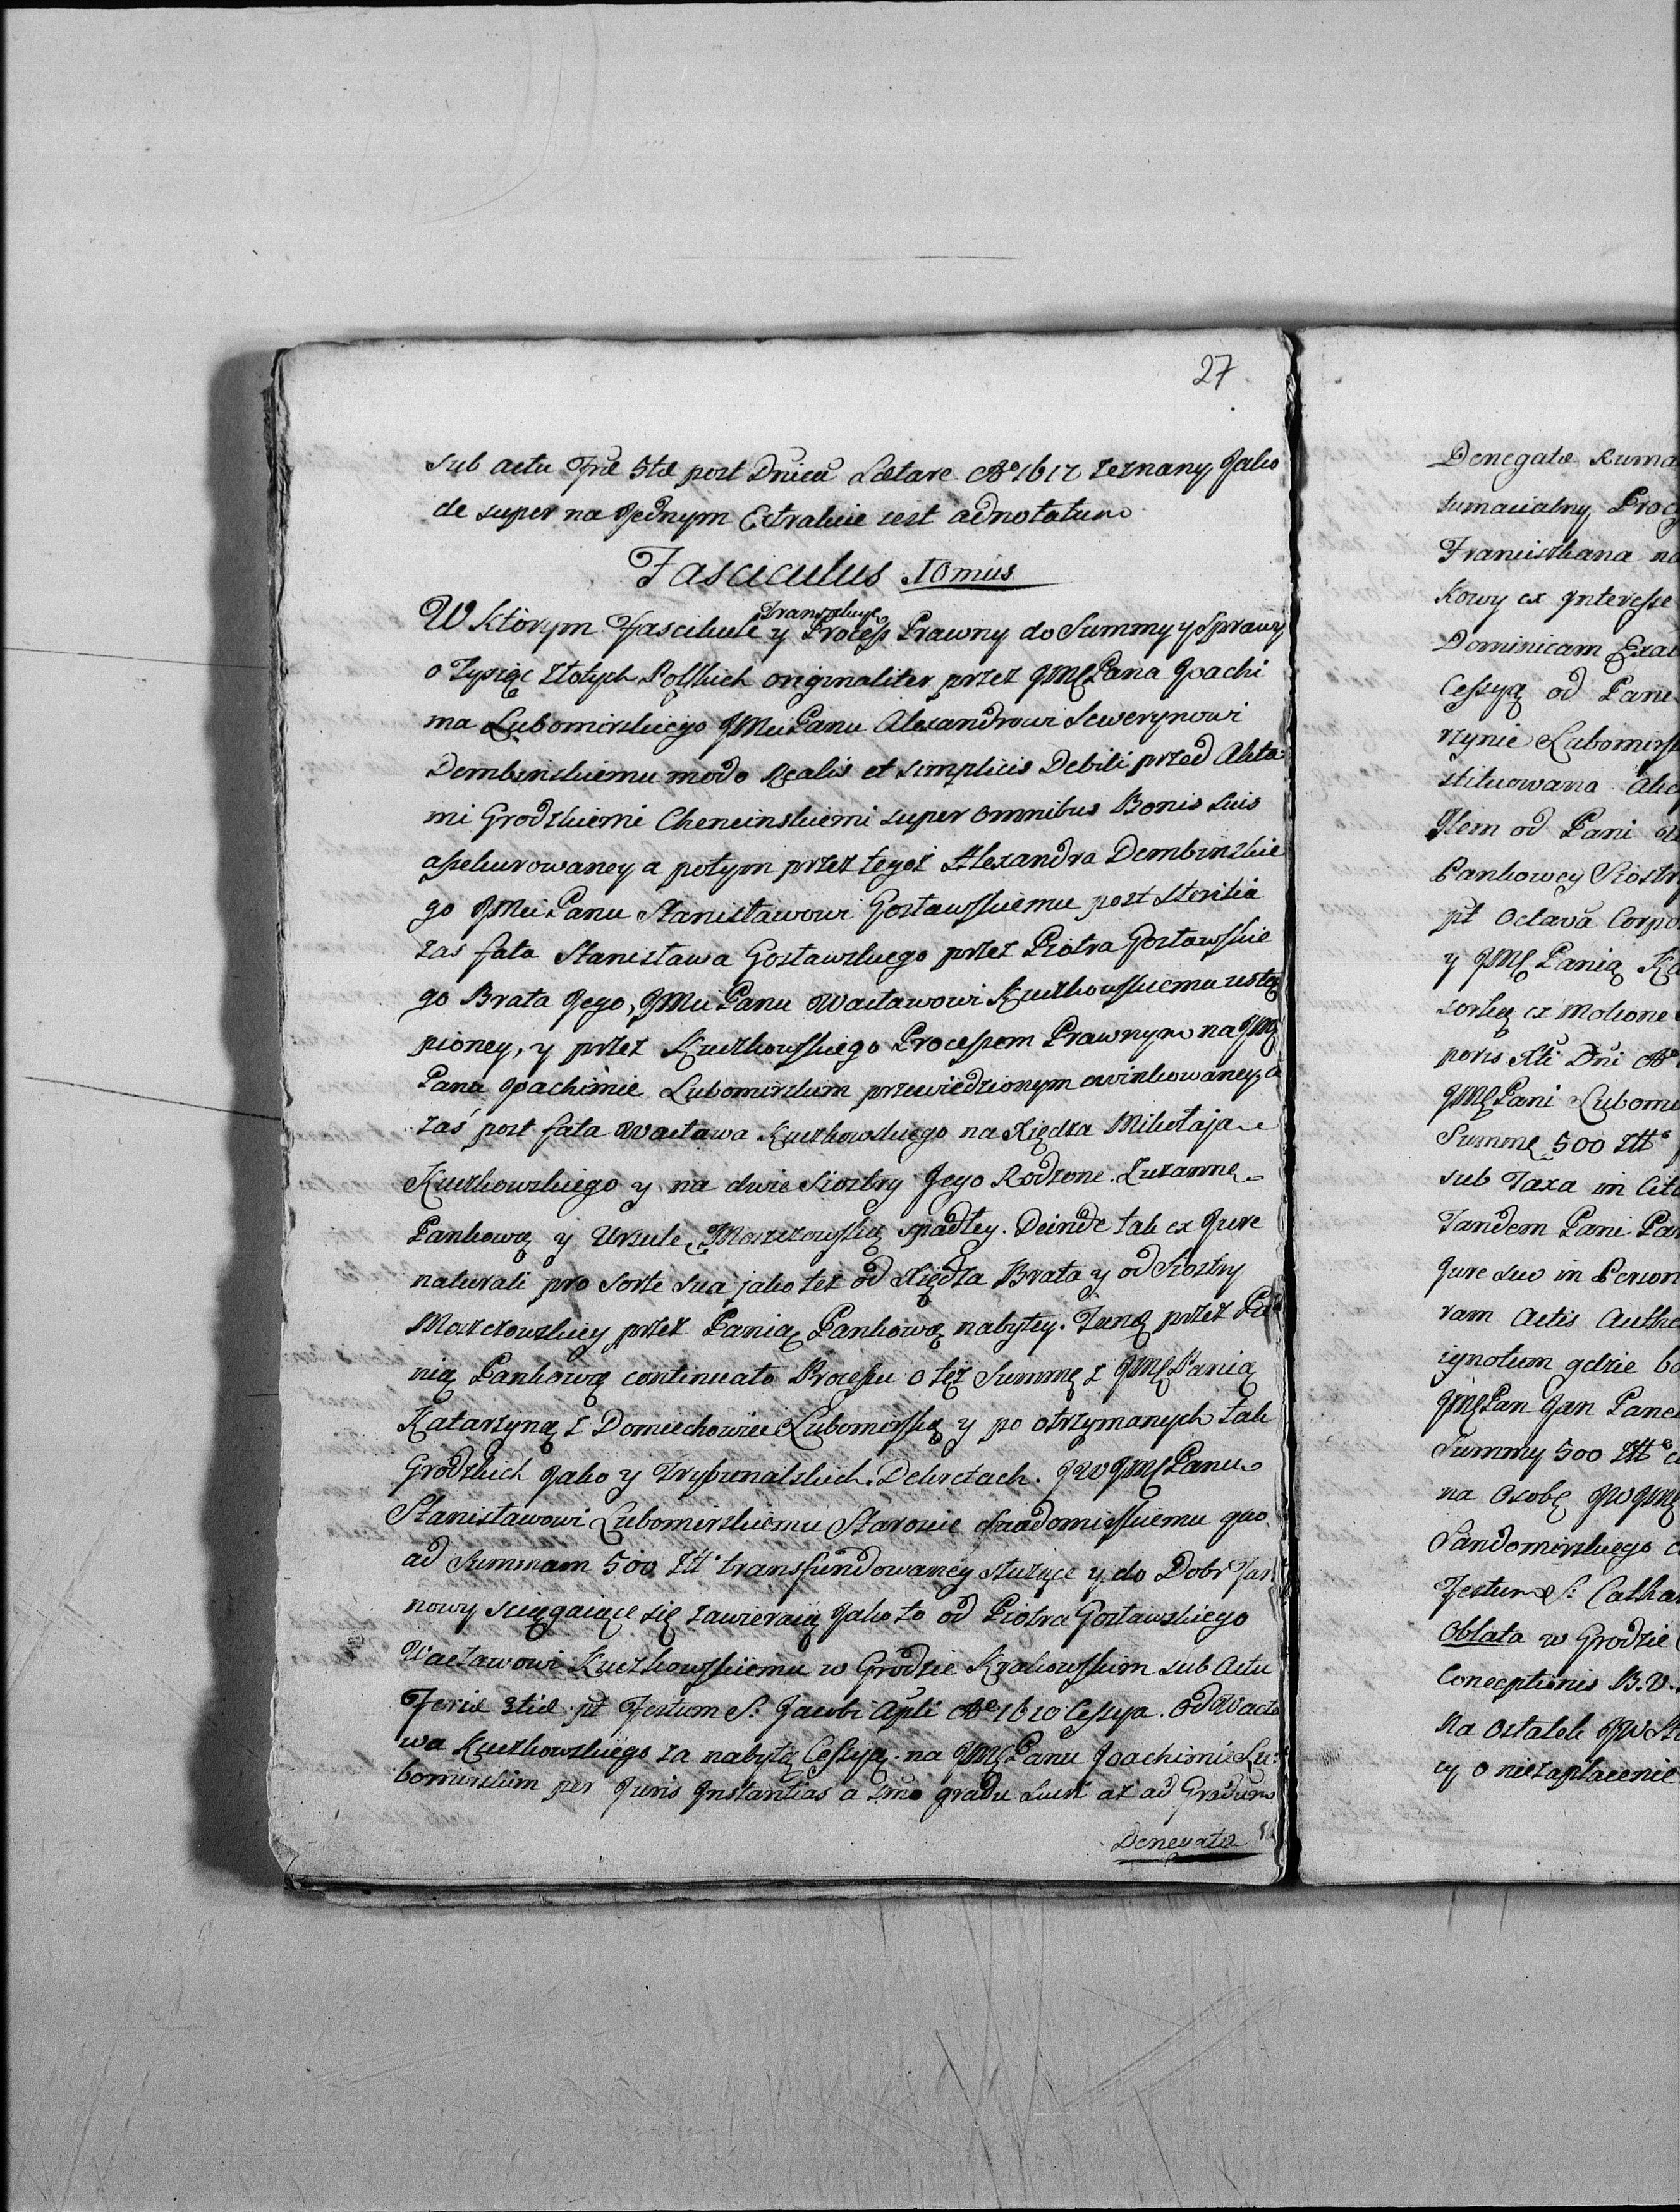 27
sub actu Fræ 5tæ post Dnicā Lætare Ao 1617 zeznany, Jako
de super na Jednym Extrakcie iest adnotatum
Fasciculus 10mus
W którym Fascikule Transfuzye y Process Prawny do Summy y Sprawy
o Tysiąc Złotych Polskich originaliter przez JMĘ Pana Joachi
ma Lubomirskiego JMci Panu Alexandrowi Sewerynowi
Dembinskiemu modo Realis et simplicis Debiti przed Akta
mi Grodzkiemi Chencinskiemi super omnibus Bonis suis
assekurowaney a potym przez tegoż Alexandra Dembinskie
go JMci Panu Stanisławowi Gosławskiemu post sterilia
zas fata Stanisława Gosławskiego przez Piotra Gosławskie
go Brata Jego, JMci Panu Wacławowi Kuczkowskiemu ustą
pioney, y przez Kuczkowskiego Processem Prawnym na JMĘ
Panu Joachimie Lubomirskim przewiedzionym ewinkowaney, a
zaś post fata Wacława Kuczkowskiego na Xiędza Mikołaja
Kuczkowskiego y na dwie Siostry Jego Rodzone Zuzannę
Pankową y Urszulę Morzkowską spadłey. Deinde tak ex Jure
naturali pro sorte sua jako też od Xiędza Brata y od Siostry
Morzkowskiey przez Panią Pankową nabytey. Tanq przez Pa
nią Pankową continuato Processu o też Summę z JMĘ Panią
Katarzyną z Domiechowic Lubomirską y po otrzymanych tak
Grodzkich Jako y Trybunalskich Dekretach. JW JMĘ Panu
Stanisławowi Lubomirskiemu Staroscie Sandomirskiemu quo
ad Summam 500 Złł. transfundowaney służące y do Dobr Jan
nowy sciągaiące się zawieraią Jako to od Piotra Gosławskiego
Wacławowi Kuczkowskiemu w Grodzie Krakowskim sub Actu
Feriæ 3tiæ pt Festum S: Jacobi Apli Ao 1610 Cessya. Od Wacła
wa Kuczkowskiego za nabytą Cessyą na JMĘ Panu Joachimie Lu:
bomirskim per Juris Instantias a 1mo gradu Lucri aż ad Gradum
Denegatæ
Denegatæ
tumacialny
Franciszkana
Kowy ex Interesse
Dominicam
Cessyą od
rzynie
stituowana
Item od Pani
Pankowey
pt Octavā
y JMĘ Panią
ex Motione
poris Xti Dni
JMĘ Pani
Summę 500 Złł
sub Taxa in
Tandem Pani
Jure suo in
ram Actis
gdzie
JMĘ Pan Jan
Summy 500 Złł
na Osobę JW JMĘ
Sandomirskiego
Festum S:
Oblata w Grodzie
Conceptionis B.V.
Na Ostatek JW
cy o niezapłacenie